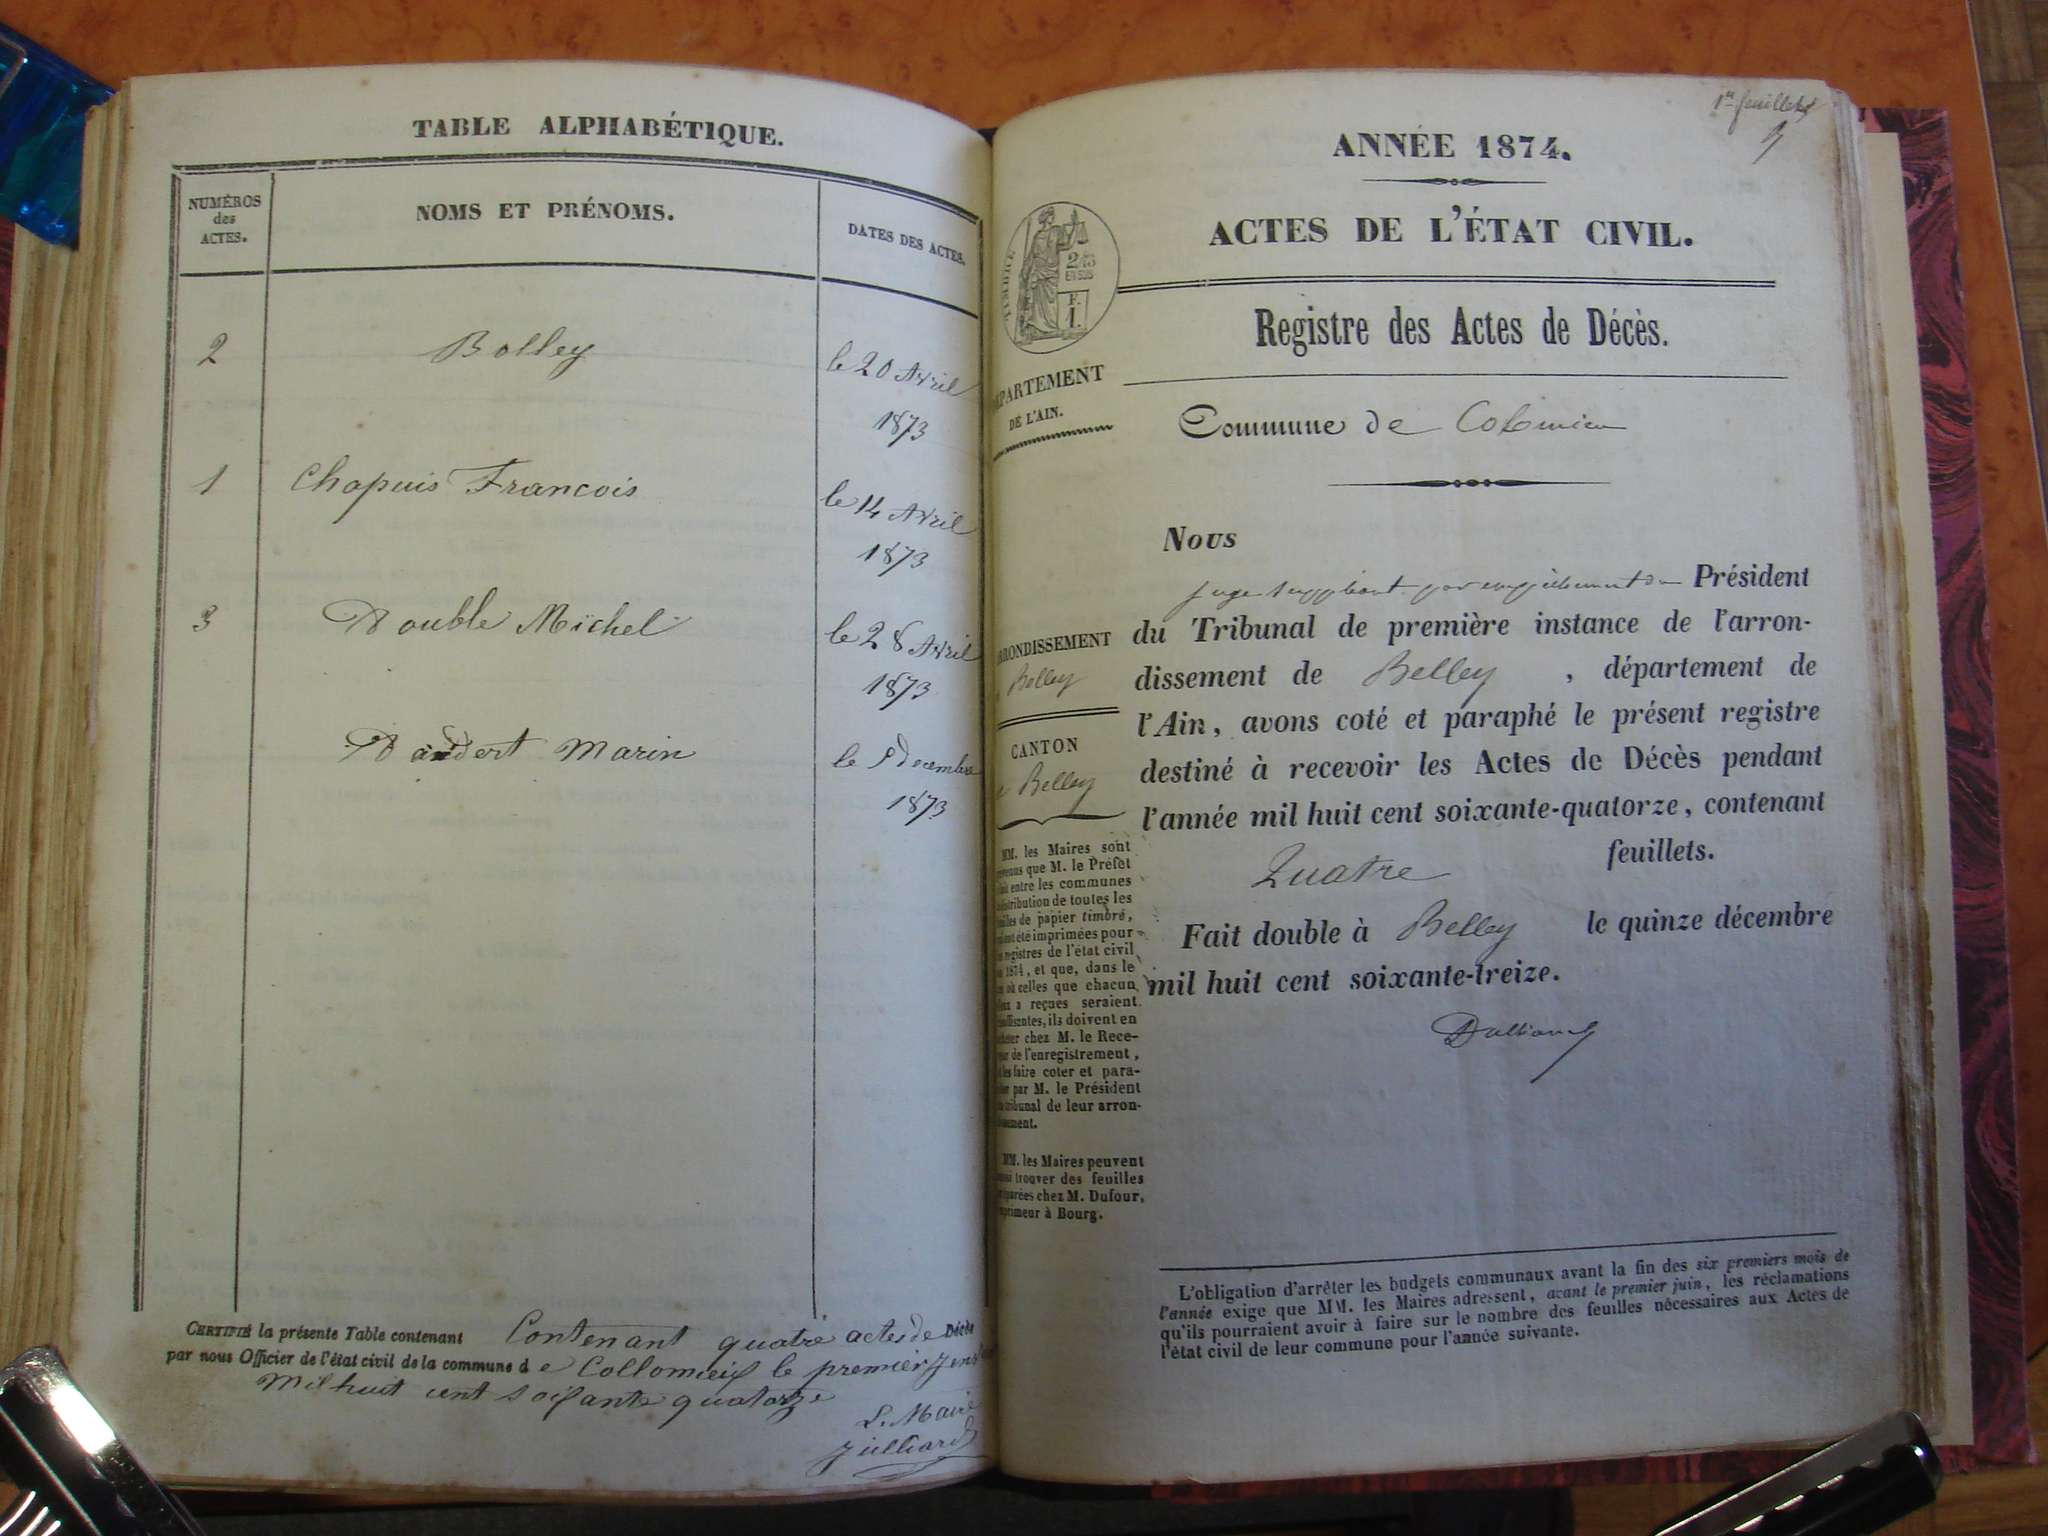 TABLE ALPHABÉTIQUE.
NUMÉROS
des
ACTES.
NOMS ET PRÉNOMS.
DATES DES ACTES.
2 Bolley le 20 Avril
1873
1 Chapuis Francois le 14 Avril
1873
3 Double Michel le 28 Avril
1873
Marin le 9 decembre
1873
CERTIFIÉ la présente Table contenant Contenant quatre actes de Décès
par nous Officier de l'état civil de la commune d e Collomieux le premier
Mil huit cent soixante quatorze
Le Maire
Juilliard
1er feuillet
ANNÉE 1874.
ACTES DE L'ÉTAT CIVIL.
TIMBRE
2/10
EN SUS
F.
1.
Registre des Actes de Décès.
DÉPARTEMENT
DE L'AIN.
Commune de Colomieu
Nous
juge suppléant par empêchement du Président
du Tribunal de première instance de l'arron-
dissement de Belley , département de
l'Ain, avons coté et paraphé le présent registre
destiné à recevoir les Actes de Décès pendant
l'année mil huit cent soixante-quatorze, contenant
Quatre feuillets.
Fait double à Belley le quinze décembre
mil huit cent soixante-treize.
ARRONDISSEMENT
Belley
CANTON
Belley
MM. les Maires sont
que M. le Préfet
entre les communes
distribution de toutes les
de papier timbré,
été imprimées pour
registres de l'état civil
1874, et que, dans le
où celles que chacun
a reçues seraient
ils doivent en
chez M. le Rece-
de l'enregistrement,
les faire coter et para-
par M. le Président
tribunal de leur arron-
MM. les Maires peuvent
trouver des feuilles
chez M. Dufour,
imprimeur à Bourg.
L'obligation d'arrêter les budgets communaux avant la fin des six premiers mois de
l'année exige que MM. les Maires adressent, avant le premier juin, les réclamations
qu'ils pourraient avoir à faire sur le nombre des feuilles nécessaires aux Actes de
l'état civil de leur commune pour l'année suivante.